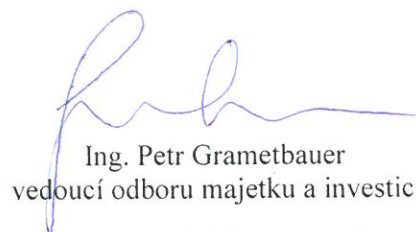 Ing. Petr Grametbauer
vedoucí odboru majetku a investic